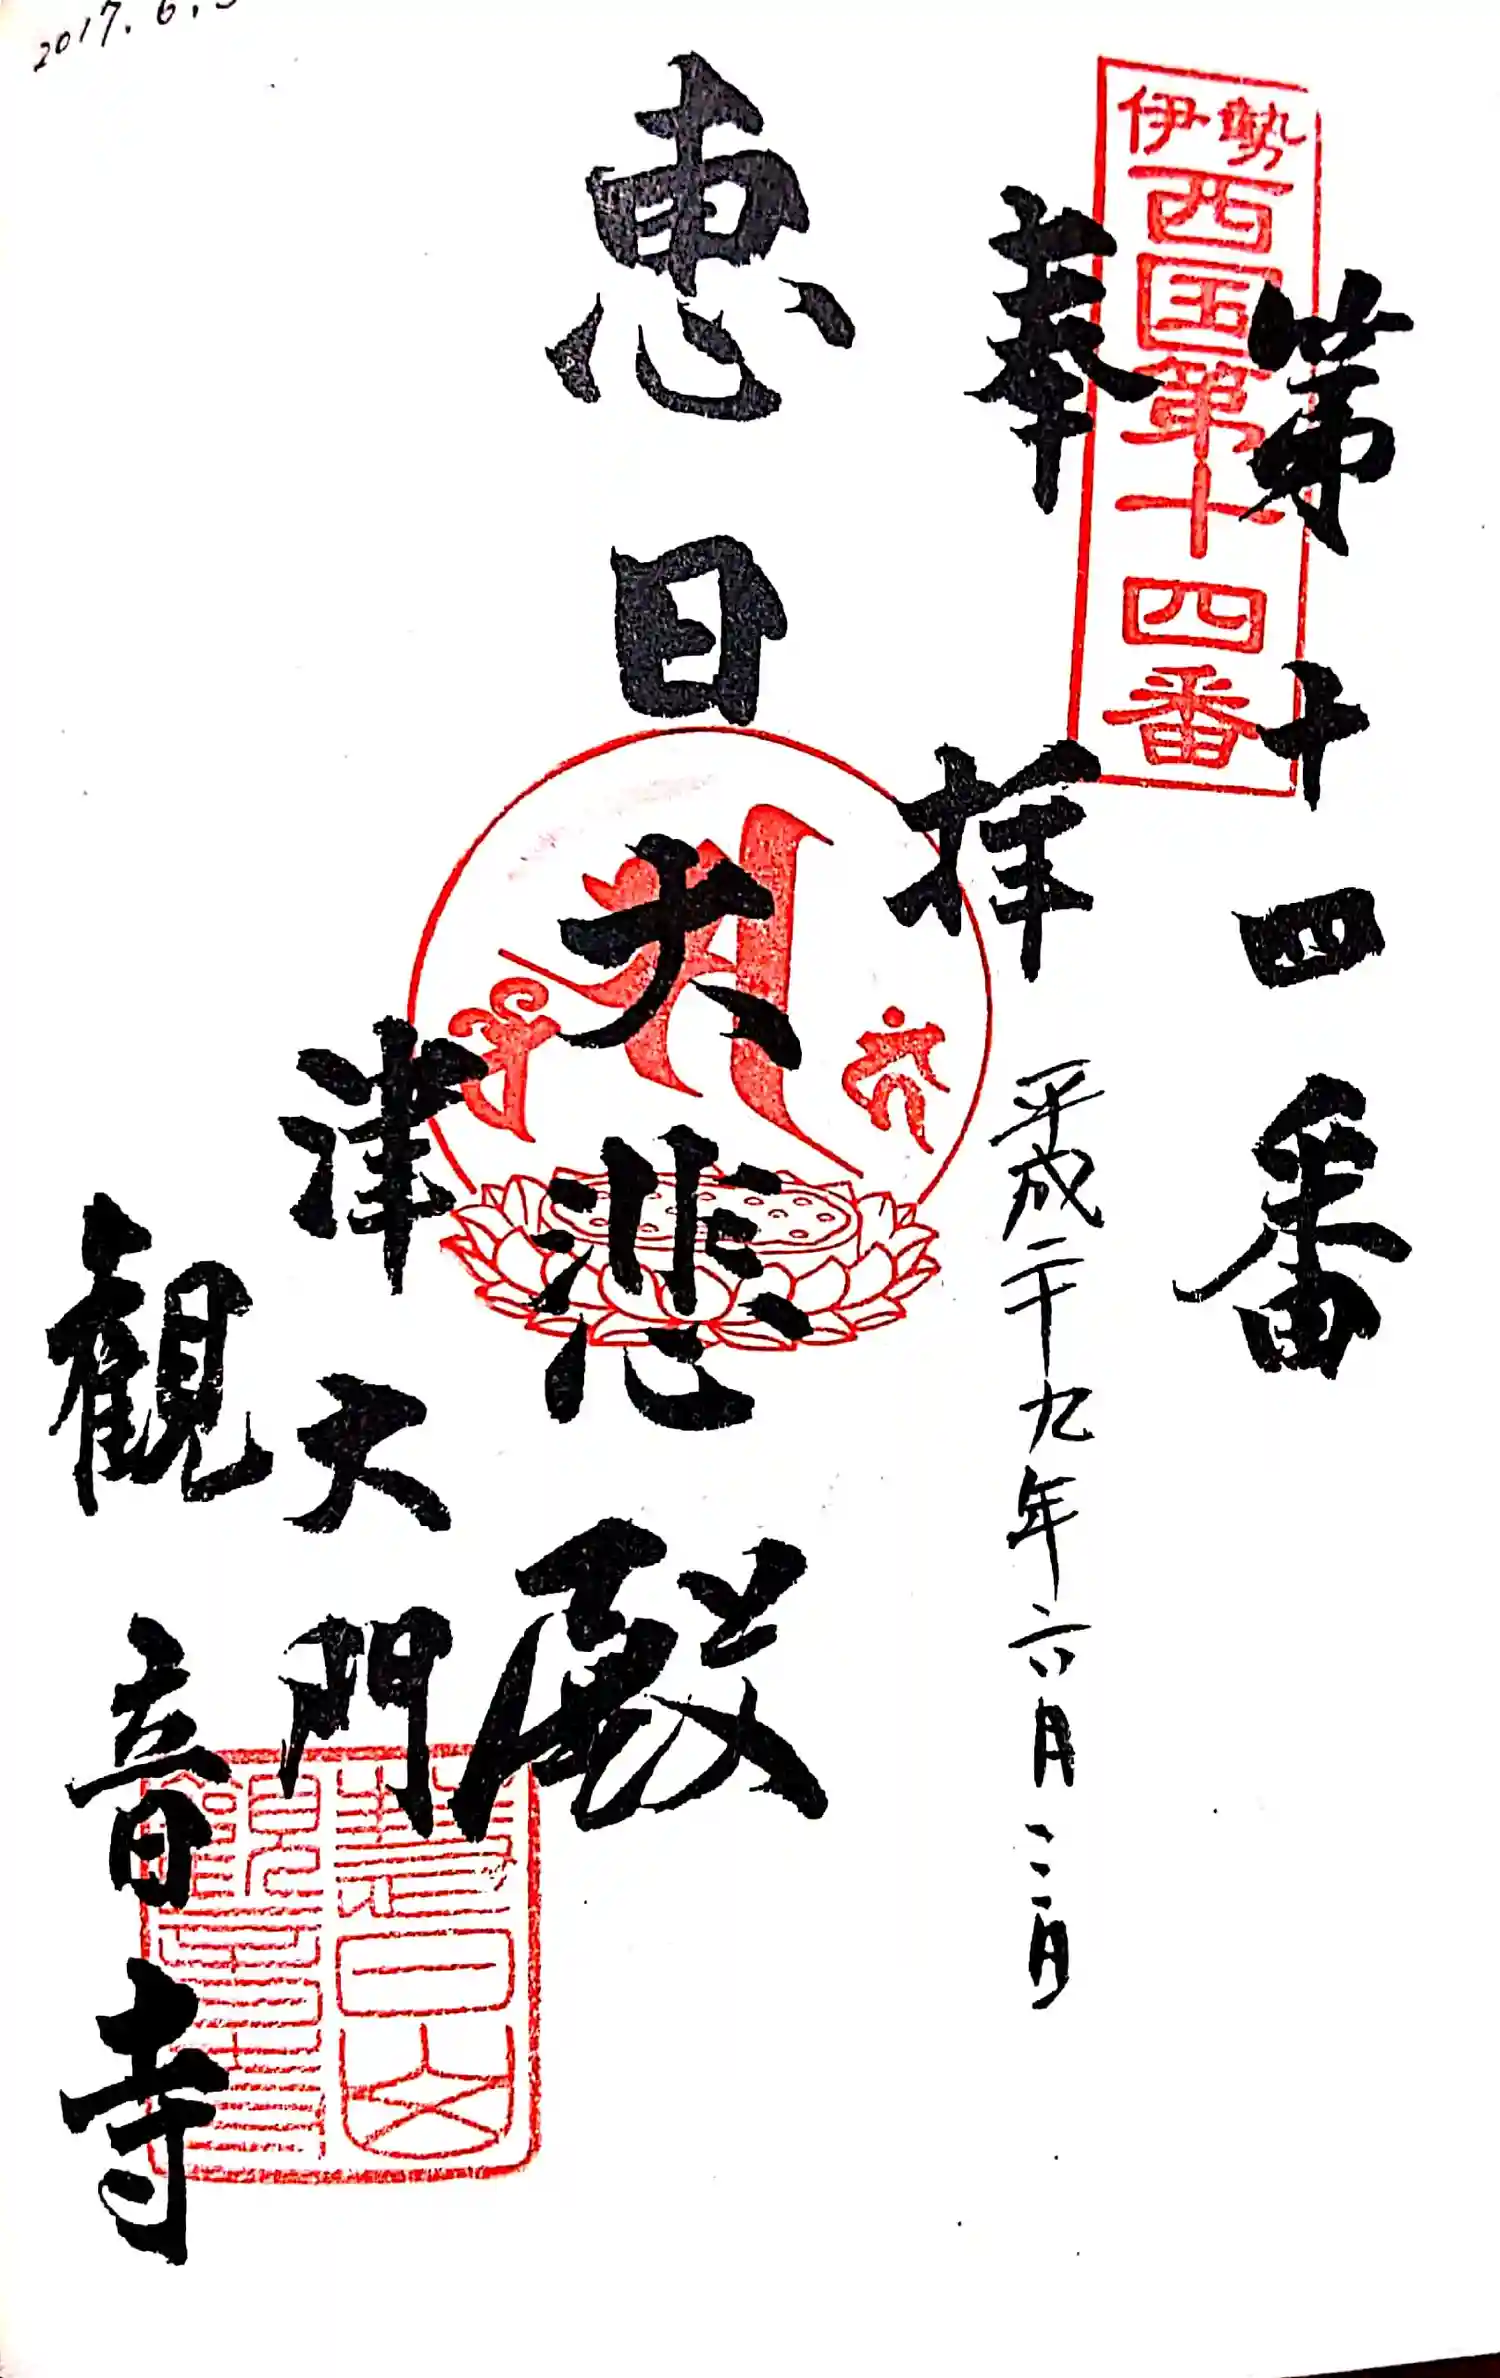 第十四番
伊勢
西国第十四番
奉拝
平成二十九年六月三日
恵日大悲殿
津大門
観音寺
慧日山
觀音寺
2017.6.